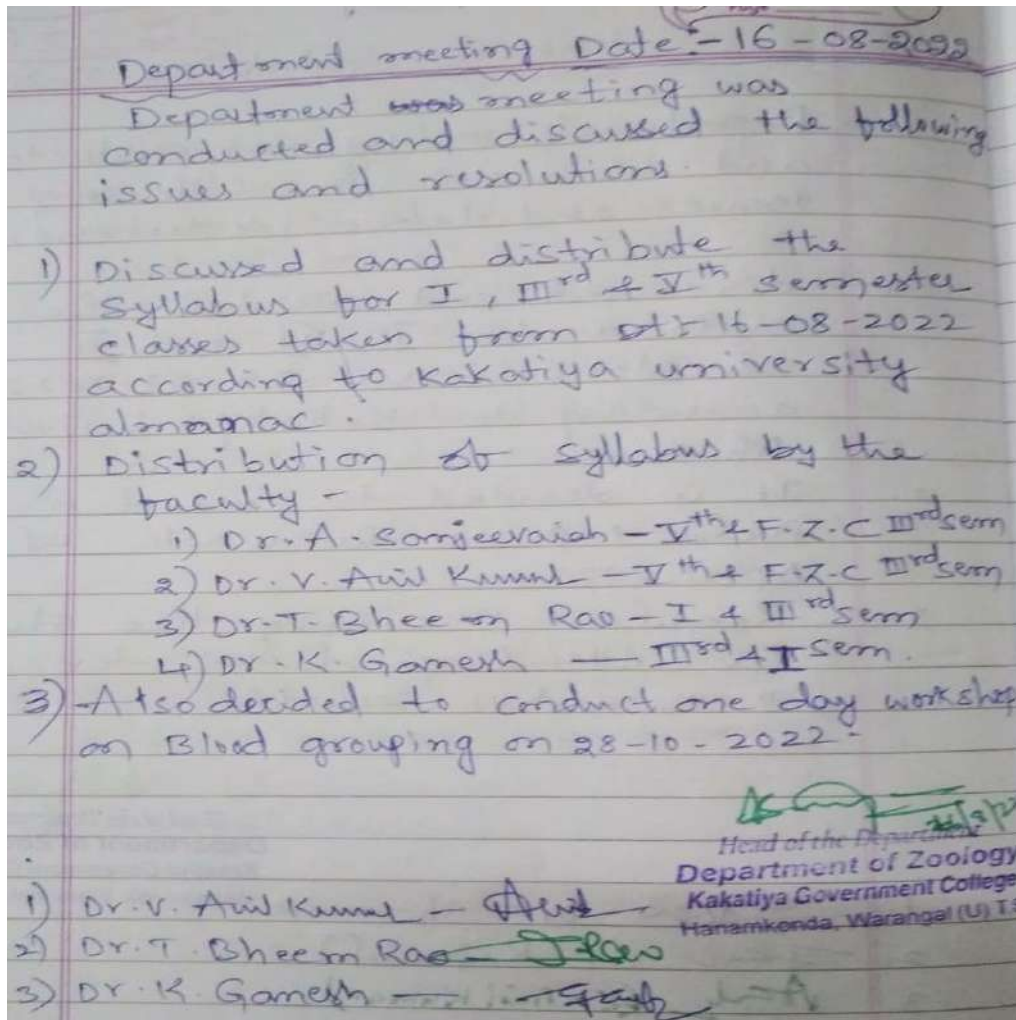 Department meeting Date:- 16-08-2022
Department meeting was
conducted and discussed the following
issues and resolutions.
1) Discussed and distribute the
syllabus for I, IIIrd & Vth semester
classes taken from dt:- 16-08-2022
according to Kakatiya university
almanac.
2) Distribution of syllabus by the
faculty -
1) Dr. A. Sanjeevaiah - Vth & F.Z.C IIIrd sem
2) Dr. V. Anil Kumar - Vth & F.Z.C IIIrd sem
3) Dr. T. Bheem Rao - I & IIIrd sem
4) Dr. K. Ganesh - IIIrd & I sem.
3) Also decided to conduct one day workshop
on Blood grouping on 28-10-2022.
Head of the Department
Department of Zoology
Kakatiya Government College
Hanamkonda, Warangal (U) T.S
1) Dr. V. Anil Kumar - Anil
2) Dr. T. Bheem Rao - T Rao
3) Dr. K. Ganesh -